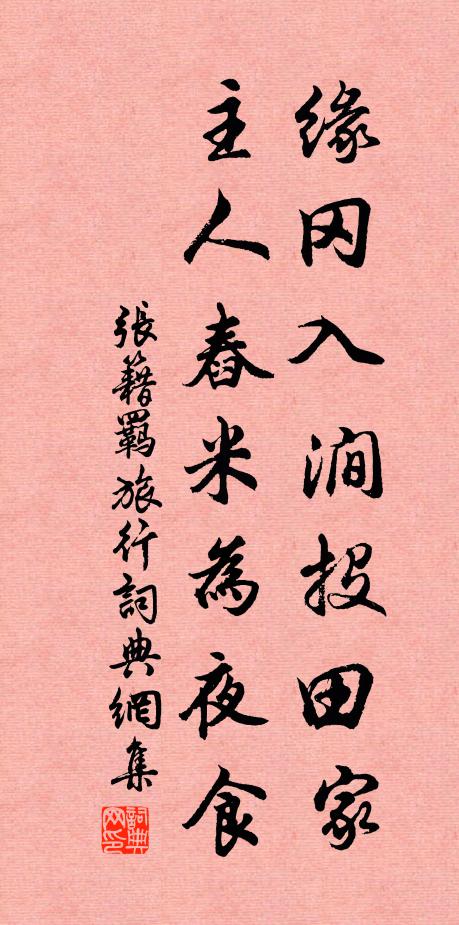 缘冈入涧投田家
主人舂米為夜食
張籍羈旅行詞典網集
詞典网印